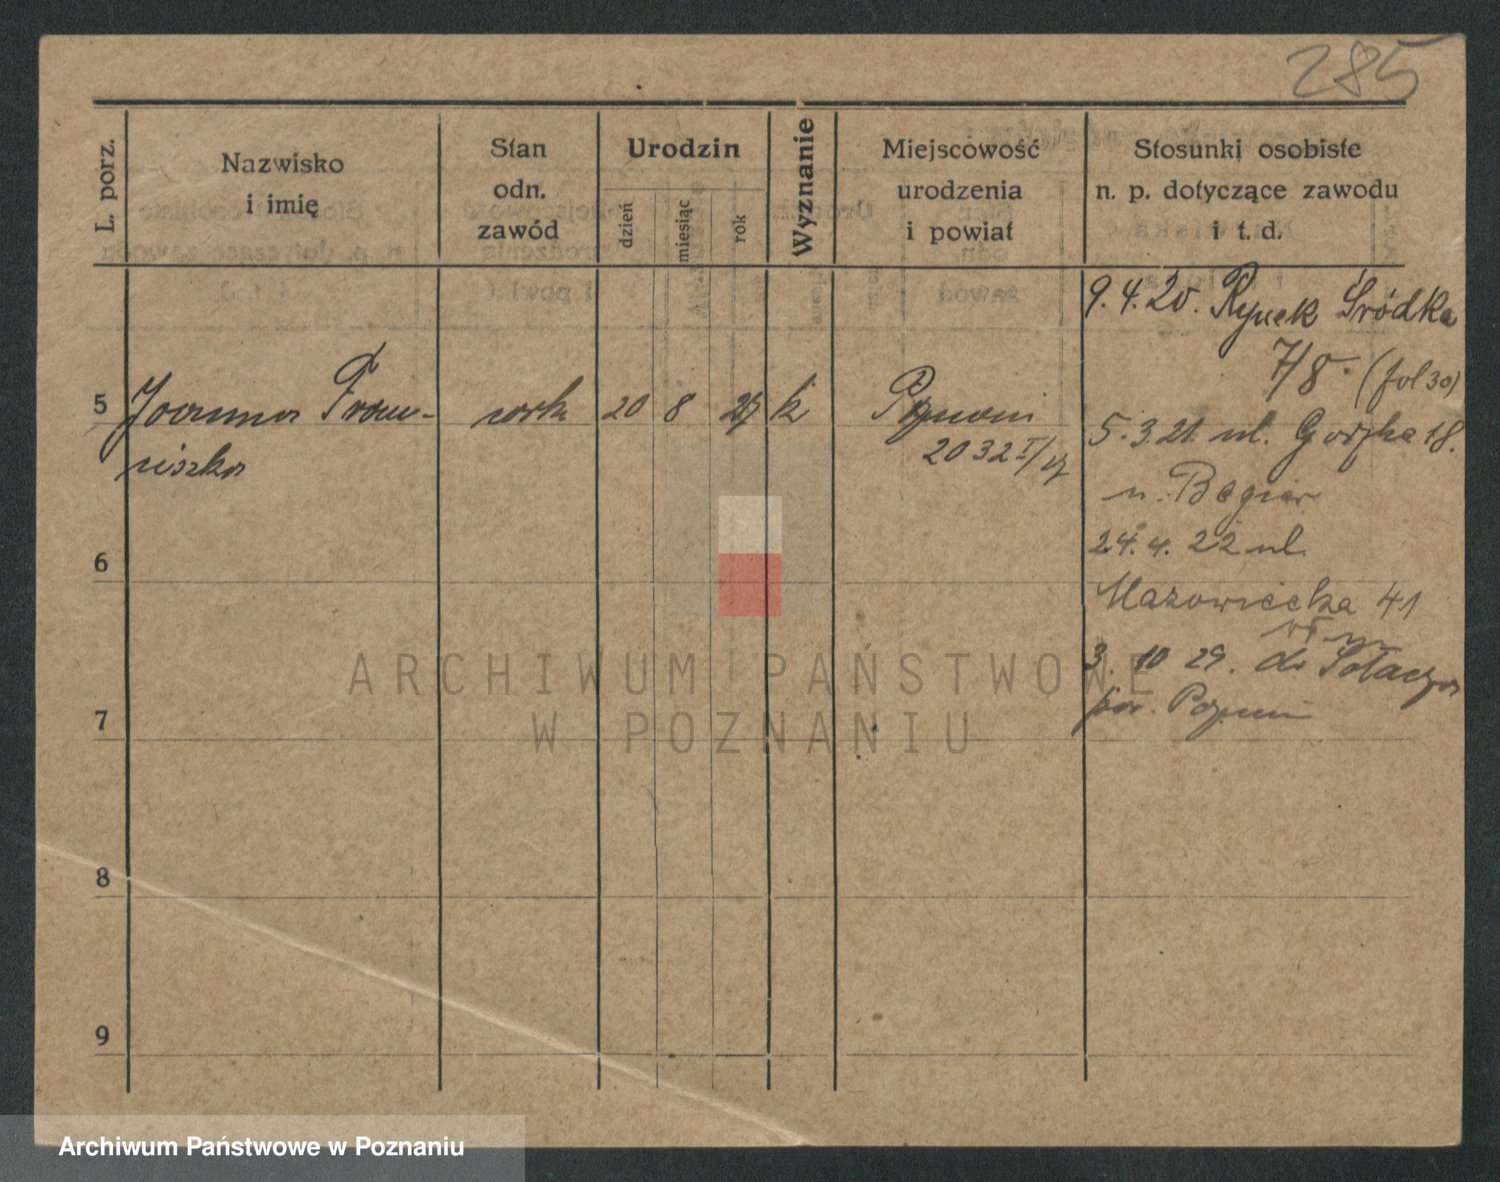 285
L. porz.
Nazwisko
i imię
Stan
odn.
zawód
Urodzin
dzień
miesiąc
rok
Wyznanie
Miejscowość
urodzenia
i powiat
Stosunki osobiste
n. p. dotyczące zawodu
i t. d.
9. 4. 20. Rynek Śródka
7/8. (fol 30)
5 Joanna Fran-
ciszka
córka 20 8 k Poznań
2032 I/
5. 3. 21. ul. Gorzka 18.
u. Bagier
24. 4. 22 ul.
6
Mazowiecka 41
3. 10 29. do Sołacza
pow. Poznań
7
8
9
ARCHIWUM PAŃSTWOWE
W POZNANIU
Archiwum Państwowe w Poznaniu